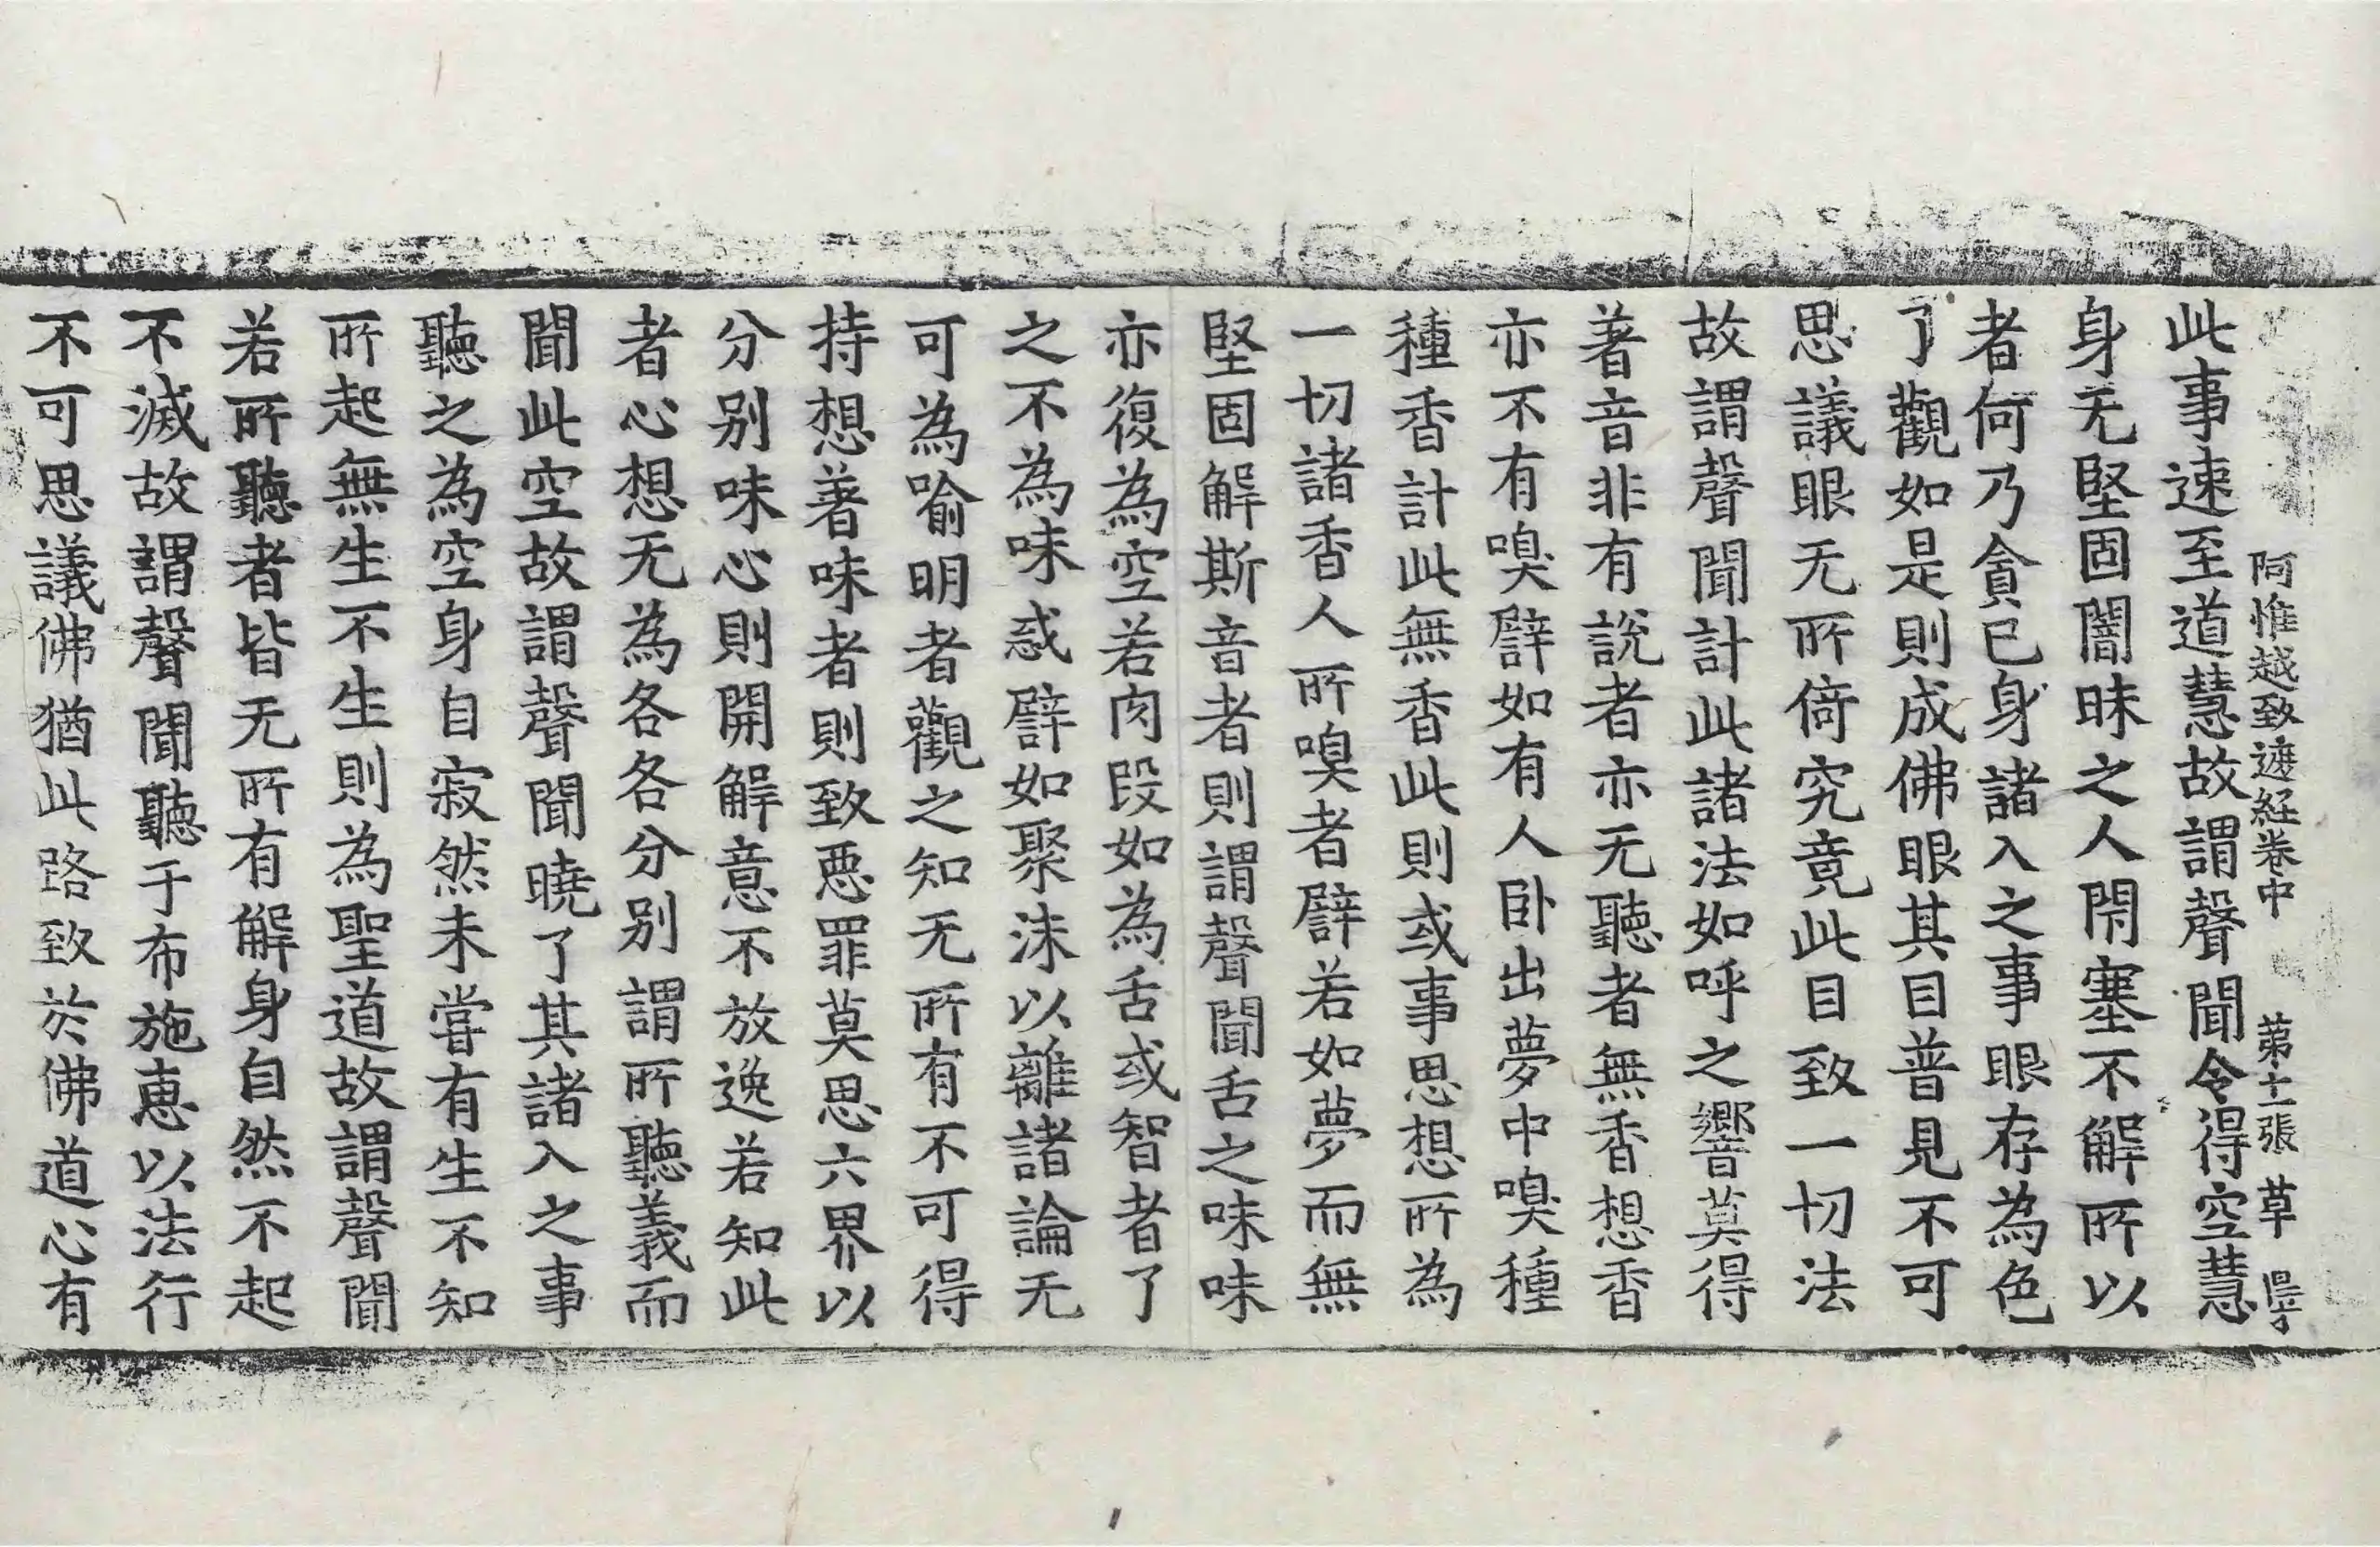 阿惟越致遮経卷中 第十二張 草
此事速至道慧故謂聲聞令得空慧
身无堅固闇昧之人閇塞不解所以
者何乃貪已身諸入之事眼存為色
了觀如是則成佛眼其目普見不可
思議眼无所倚究竟此目致一切法
故謂聲聞計此諸法如呼之響莫得
著音非有說者亦无聽者無香想香
亦不有嗅譬如有人卧出夢中嗅種
種香計此無香香此則或事思想所為
一切諸香人所嗅者譬若如夢而無
堅固解斯音者則謂聲聞舌之味味
亦復為空若肉段如為舌或智者了
之不為味惑譬如聚沫以離諸論无
可為喻明者觀之知无所有不可得
持想著味者則致惡罪莫思六界以
分別味心則開解意不放逸若知此
者心想无為各各分別謂所聽義而
聞此空故謂聲聞曉了其諸入之事
聽之為空身自寂然未嘗有生不知
所起無生不生則為聖道故謂聲聞
若所聽者皆无所有解身自然不起
不滅故謂聲聞聽于布施惠以法行
不可思議佛猶此路致於佛道心有